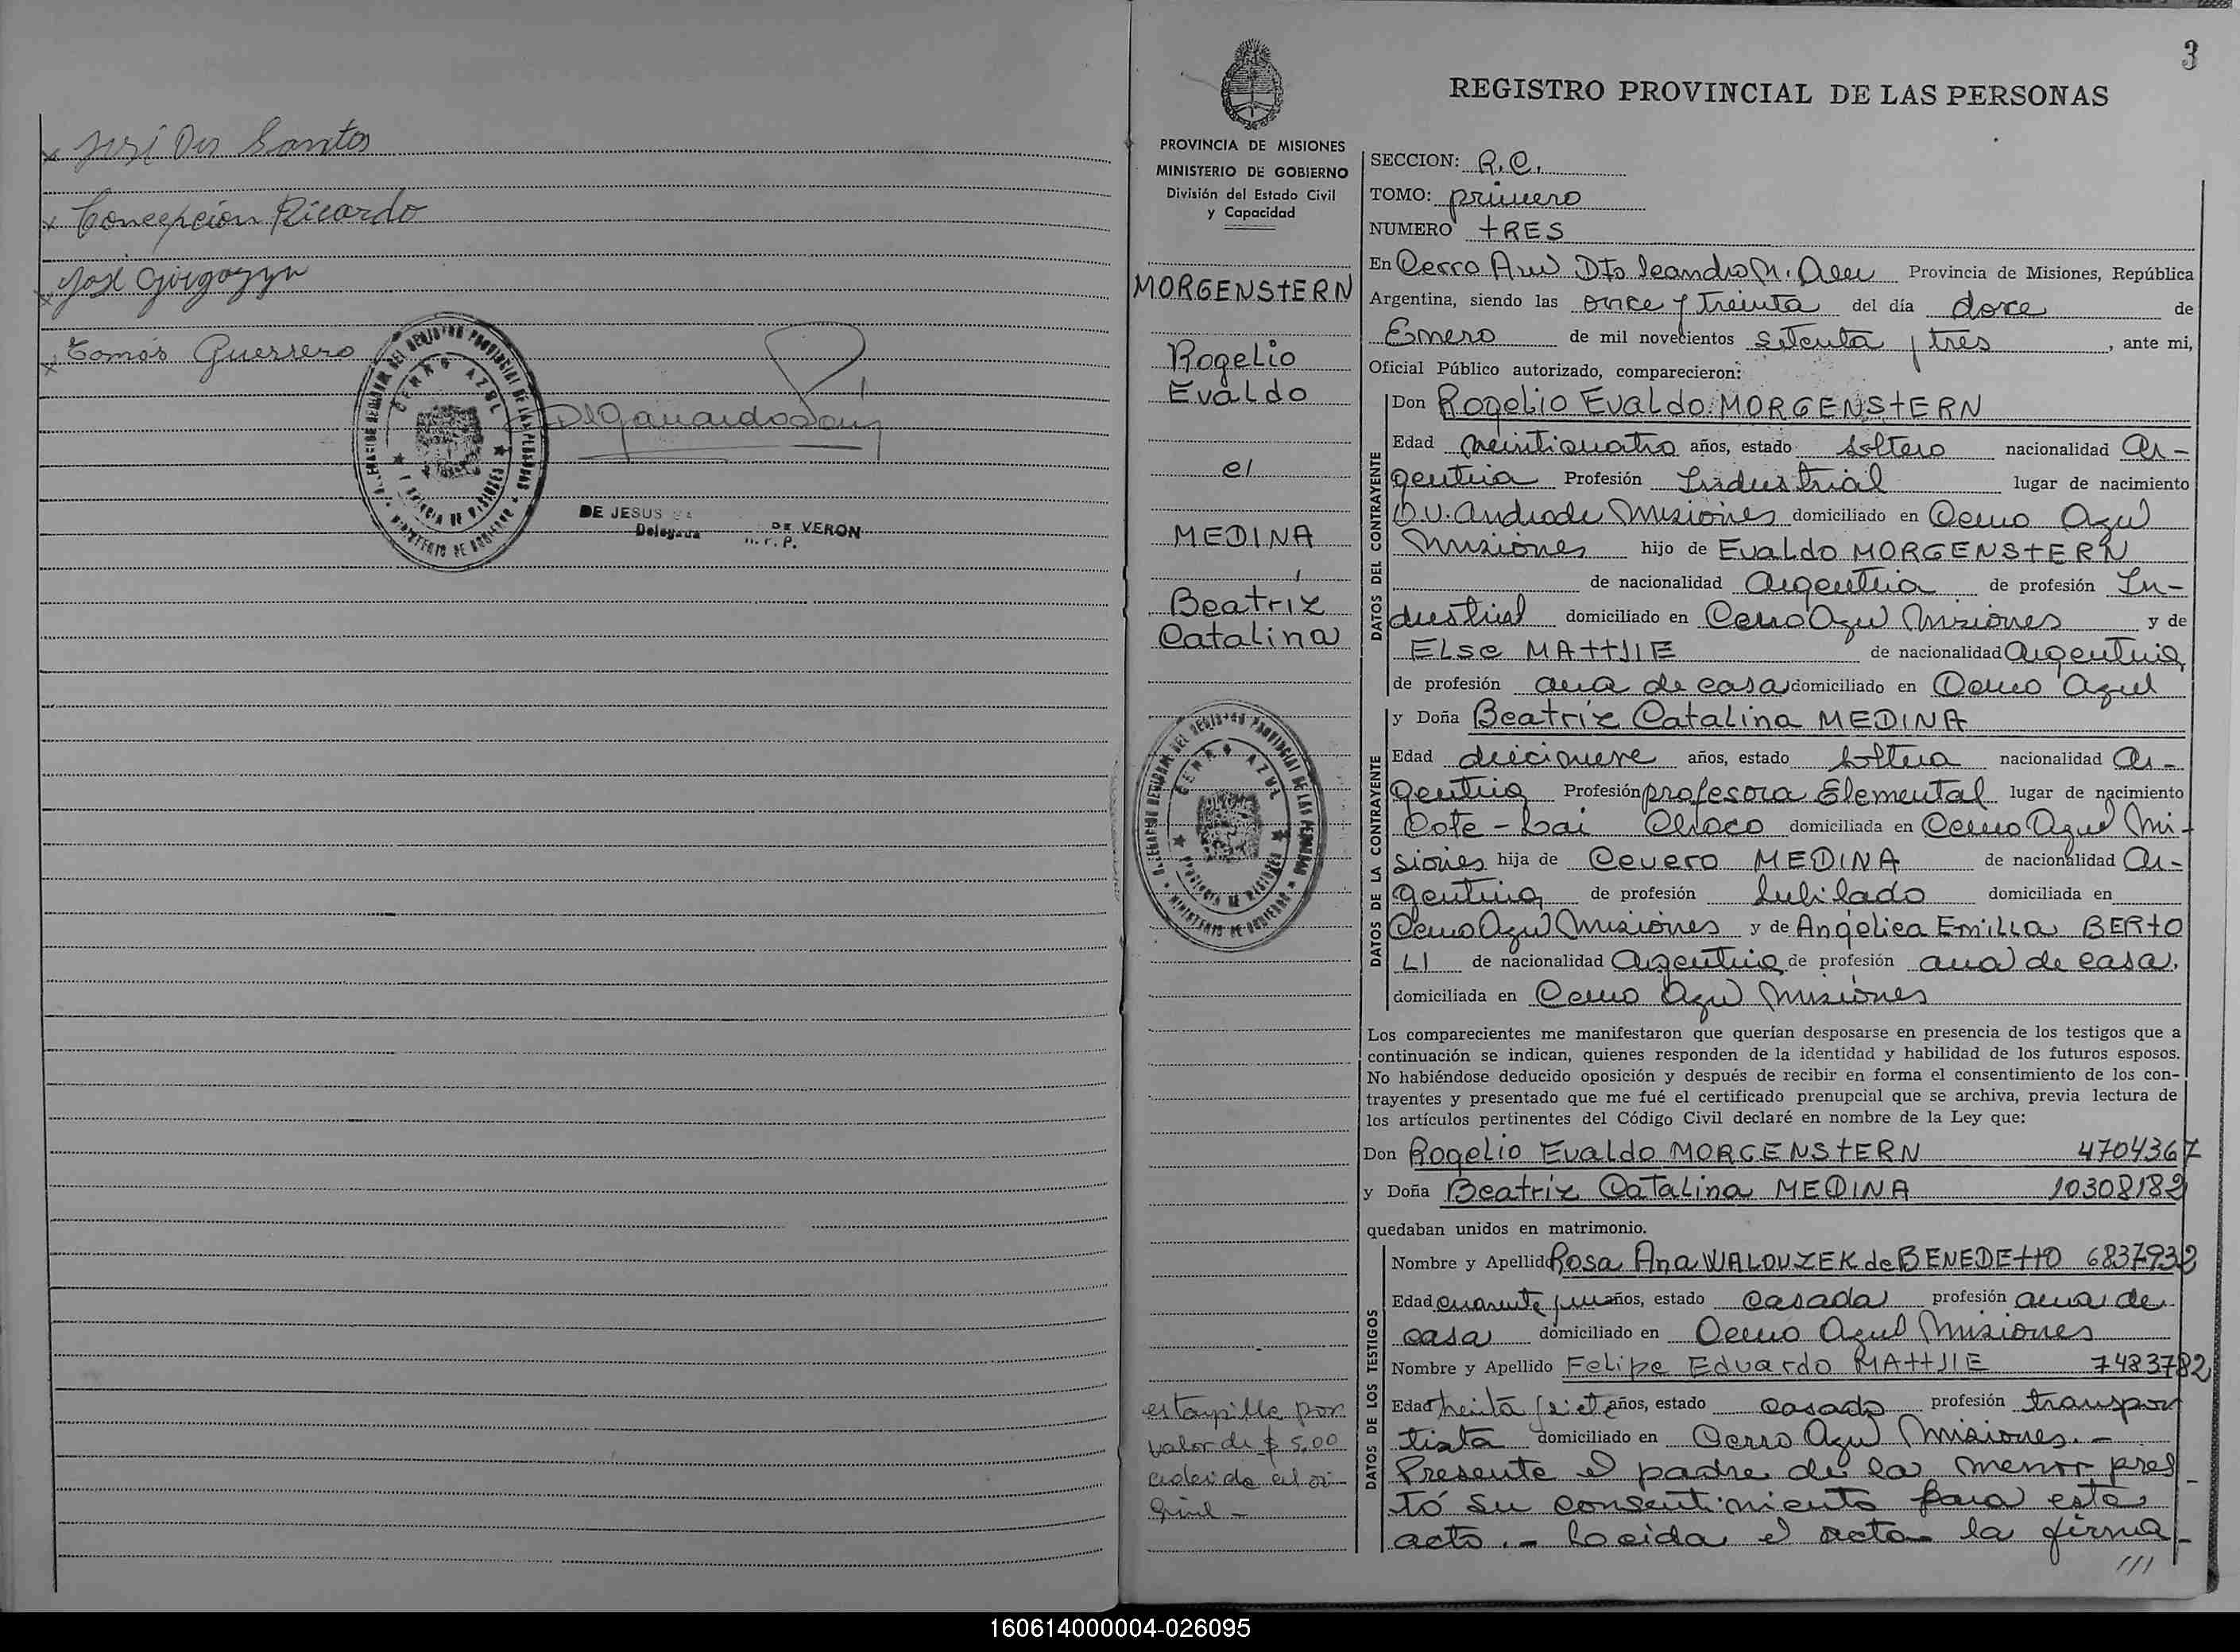 José Dos Santos
Concepción Ricardo
José
Tomás Guerrero
DELEGACION REGIONAL DEL REGISTRO PROVINCIAL DE LAS PERSONAS
CERRO AZUL
PROVINCIA DE MISIONES
MINISTERIO DE GOBIERNO
DE JESUS DE VERON
Delegada R. P. P.
3
REGISTRO PROVINCIAL DE LAS PERSONAS
PROVINCIA DE MISIONES
MINISTERIO DE GOBIERNO
División del Estado Civil
y Capacidad
MORGENSTERN
Rogelio
Evaldo
el
MEDINA
Beatríz
Catalina
DELEGACION REGIONAL DEL REGISTRO PROVINCIAL DE LAS PERSONAS
CERRO AZUL
PROVINCIA DE MISIONES
MINISTERIO DE GOBIERNO
estampilla por
valor de $ 5,00
aderida al ori-
ginal -
SECCION: R.C.
TOMO: primero
NUMERO tRES
En Cerro Azul Dto Leandro N. Alem Provincia de Misiones, República
Argentina, siendo las once y treinta del día doce de
Enero de mil novecientos setenta y tres, ante mi,
Oficial Público autorizado, comparecieron:
DATOS DEL CONTRAYENTE
Don Rogelio Evaldo MORGENSTERN
Edad veinticuatro años, estado soltero nacionalidad Ar-
gentina Profesión Industrial lugar de nacimiento
O.V. Andrade Misiones domiciliado en Cerro Azul
Misiones hijo de Evaldo MORGENSTERN
de nacionalidad Argentina de profesión In-
dustrial domiciliado en Cerro Azul Misiones y de
Else MATTJIE de nacionalidad Argentina
de profesión ama de casa domiciliado en Cerro Azul
DATOS DE LA CONTRAYENTE
y Doña Beatríz Catalina MEDINA
Edad diecinueve años, estado soltera nacionalidad Ar-
gentina Profesión profesora Elemental lugar de nacimiento
Cote-Lai Chaco domiciliada en Cerro Azul Mi-
siones hija de Cevero MEDINA de nacionalidad Ar-
gentina de profesión Jubilado domiciliada en
Cerro Azul Misiones y de Angélica Emilia BERTO
LI de nacionalidad Argentina de profesión ama de casa.
domiciliada en Cerro Azul Misiones
Los comparecientes me manifestaron que querían desposarse en presencia de los testigos que a
continuación se indican, quienes responden de la identidad y habilidad de los futuros esposos.
No habiéndose deducido oposición y después de recibir en forma el consentimiento de los con-
trayentes y presentado que me fué el certificado prenupcial que se archiva, previa lectura de
los artículos pertinentes del Código Civil declaré en nombre de la Ley que:
Don Rogelio Evaldo MORGENSTERN 4704367
y Doña Beatríz Catalina MEDINA 10308182
quedaban unidos en matrimonio.
DATOS DE LOS TESTIGOS
Nombre y Apellido Rosa Ana WALOUZEK de BENEDETTO 6837932
Edad cuarenta y un años, estado casada profesión ama de
casa domiciliado en Cerro Azul Misiones
Nombre y Apellido Felipe Eduardo MATTJIE 7483782
Edad treinta y siete años, estado casado profesión transpor
tista domiciliado en Cerro Azul Misiones.-
Presente el padre de la menor pres
tó su consentimiento para este
acto.- Leeida el acta la firma
///
160614000004-026095